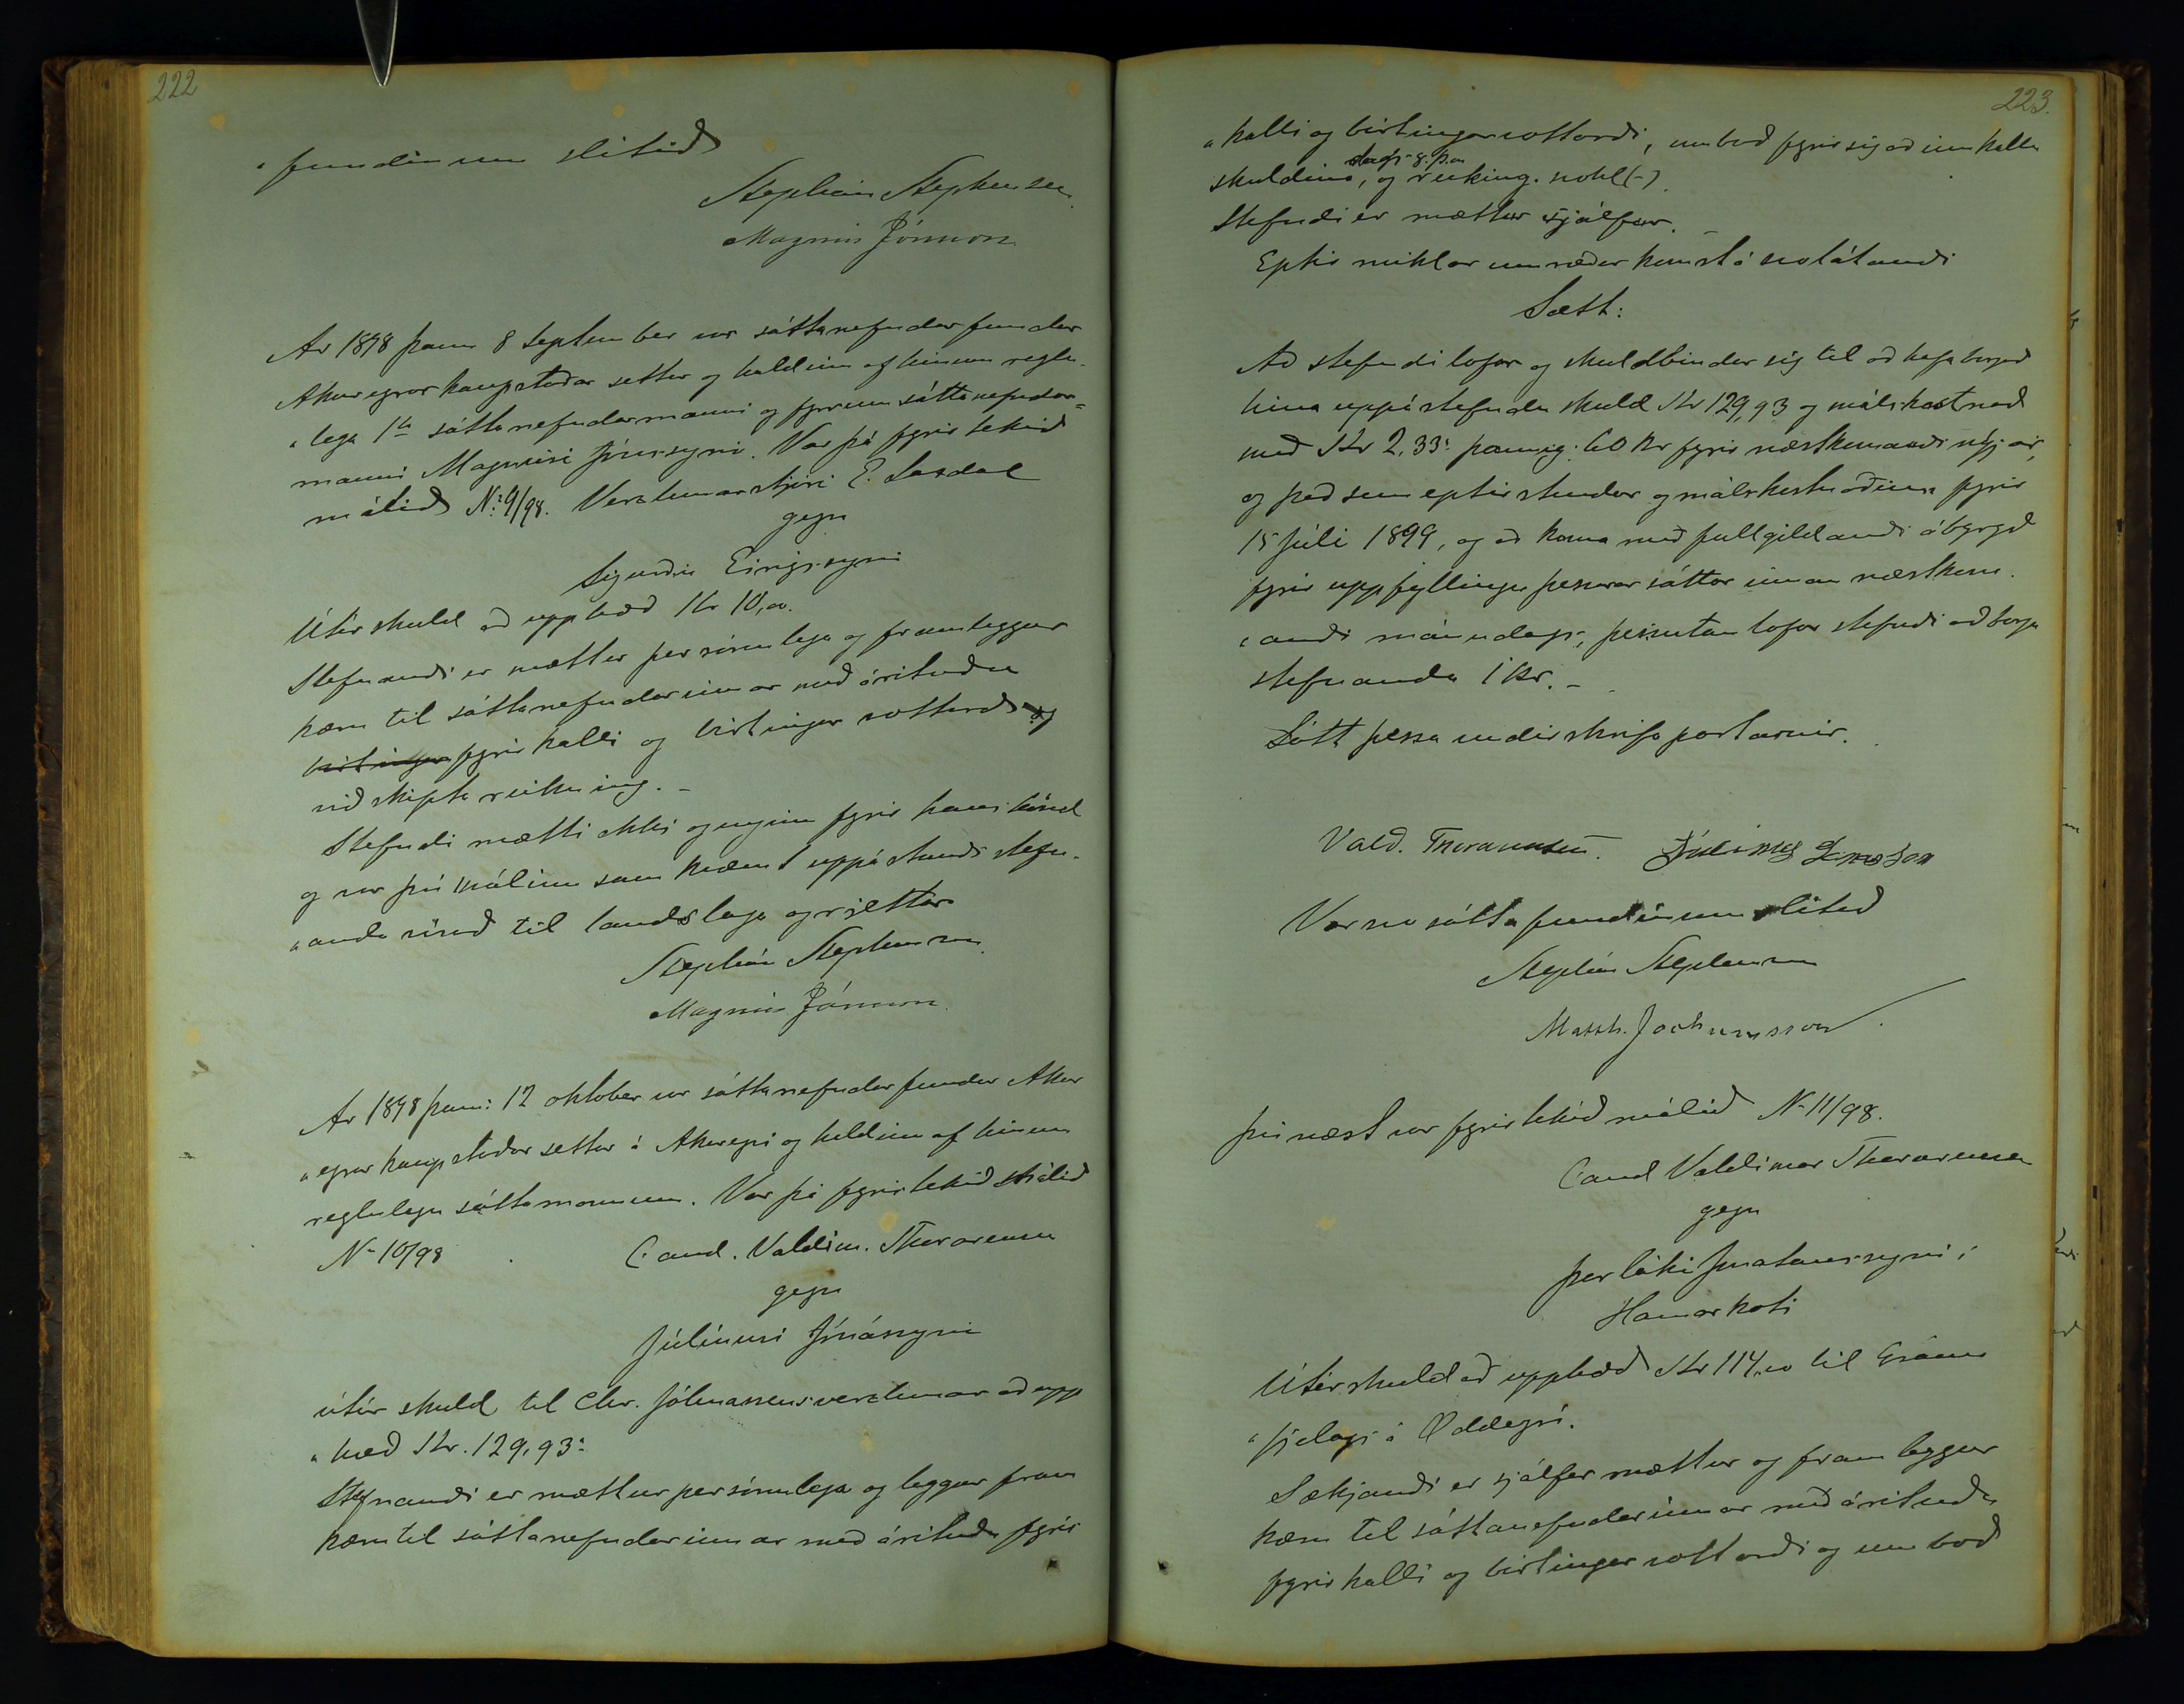 222
„fundinum slitið
Stephán Stephensen.
Magnús Jónsson
Ár 1898 þann 8 September var sáttanefndar fundur
Akureyrar kaupstaðar settur og haldinn af hinum reglu-
„lega 1ta sáttanefndarmanni og fyrrum sáttanefndar=
manni Magnúsi Jónssyni. Var þá fyrir tekið
málið No: 9/98. Verzlunarstjóri E. Laxdal
gegn
Sigurði Eiríkssyni
Útúr skuld að upphæð Kr 10,00.
Stefnandi er mættur persónulega og framleggur
kæru til sáttanefndarinnar með árituðu
birtingar fyrirkalli og birtingar vottorði og
viðskipta reikning. –
Stefndi mætti ekki og enginn fyrir hans hönd
og var því málinu samkvæmt uppástandi stefn-
„anda vísað til landslaga og rjettar
Stephán Stephensen.
Magnús Jónsson.
Ár 1898 þann: 12 oktober var sáttanefndar fundur Akur
„eyrar kaupstaðar settur á Akureyri og haldinn af hinum
reglulegu sáttamönnum. Var þá fyrirtekið málið
No 10/98 Cand. Valdim. Thorarensen
gegn
Júlíusi Jónássyni
útúr skuld til Chr. Jóhnassens verzlunar að upp
„hæð Kr. 129,93:
Stefnandi er mættur persónulega og leggur fram
kæru til sáttanefndarinnar með árituðu fyrir
223.
„kalli og birtingarvottorði, umboð fyrir sig að innkalla
dags. g. þ.m
skuldina, og reikning. nohl(-)
Stefndi er mættur sjálfur. –
Eptir miklar umræður komst á svolátandi
Sætt:
Að stefndi lofar og skuldbindur sig til að hafa borgað
hina uppástefndu skuld Kr 129,93 og málskostnað
með Kr 2,33: þannig: 60 Kr fyrir næstkomandi nýjár,
og það sem eptir stendur og málskostnaðinn fyrir
15 Júli 1899, og að koma með fullgildandi ábyrgð
fyrir uppfyllingu þessarar sáttar innan næstkom.
„andi mánudags, þessutan lofar stefndi að borga
stefnanda 1 Kr. –
Sátt þessa undirskrifa partarnir.
Vald. Thorarensen. Júlíus Jónasson
Var svo sátta fundinum slitið
Stephán Stephensen
Matth. Jochumsson.
Þvínæst var fyrirtekið málið No 11/98.
Cand Valdimar Thorarensen
gegn
Þorláki Jónatanssyni í
Hamarkoti
Útúr skuld að upphæð Kr 114,10 til Gránu
„fjelags á Oddeyri.
Sækjandi er sjálfur mættur og fram leggur
kæru til sáttanefndarinnar með árituðu
fyrirkalli og birtingar vottorði og umboð